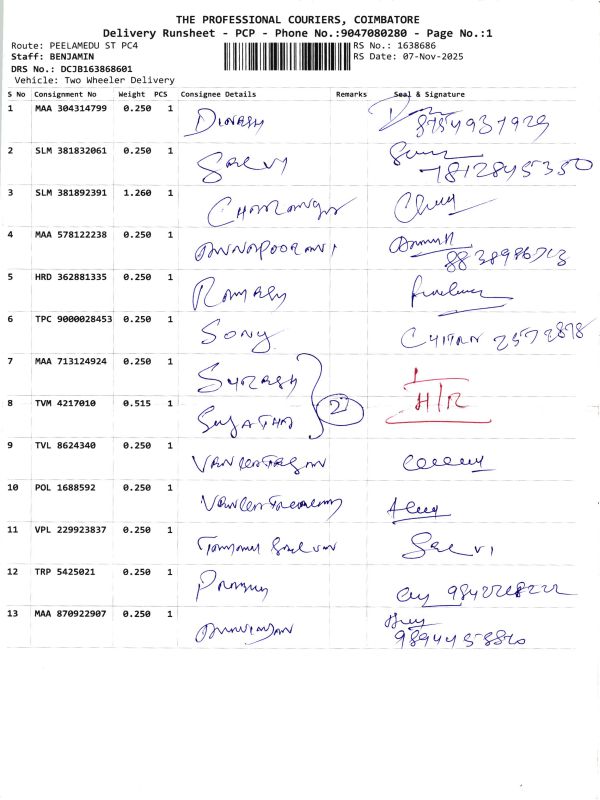 THE PROFESSIONAL COURIERS, COIMBATORE
Delivery Runsheet - PCP - Phone No.:9047080280 - Page No.:1
Route: PEELAMEDU ST PC4 RS No.: 1638686
Staff: BENJAMIN RS Date: 07-Nov-2025
DRS No.: DCJB163868601
Vehicle: Two Wheeler Delivery
S No Consignment No Weight PCS Consignee Details Remarks Seal & Signature
1 MAA 304314799 0.250 1 DINESH 8754937929
2 SLM 381832061 0.250 1 SELVI 7812845350
3 SLM 381892391 1.260 1
4 MAA 578122238 0.250 1 ANNAPOORANI
5 HRD 362881335 0.250 1 RAMESH
6 TPC 9000028453 0.250 1 SONY
7 MAA 713124924 0.250 1 SURESH
8 TVM 4217010 0.515 1 SUJATHA 2 H/R
9 TVL 8624340 0.250 1
10 POL 1688592 0.250 1
11 VPL 229923837 0.250 1 SELVI
12 TRP 5425021 0.250 1
13 MAA 870922907 0.250 1